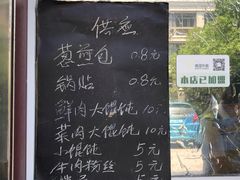 供应
葱煎包 0.8元
锅贴 0.8元
鲜肉大馄饨 10元
菜肉大馄饨 10元
小馄饨 5元
牛肉粉丝 5元
5元
本店已加盟